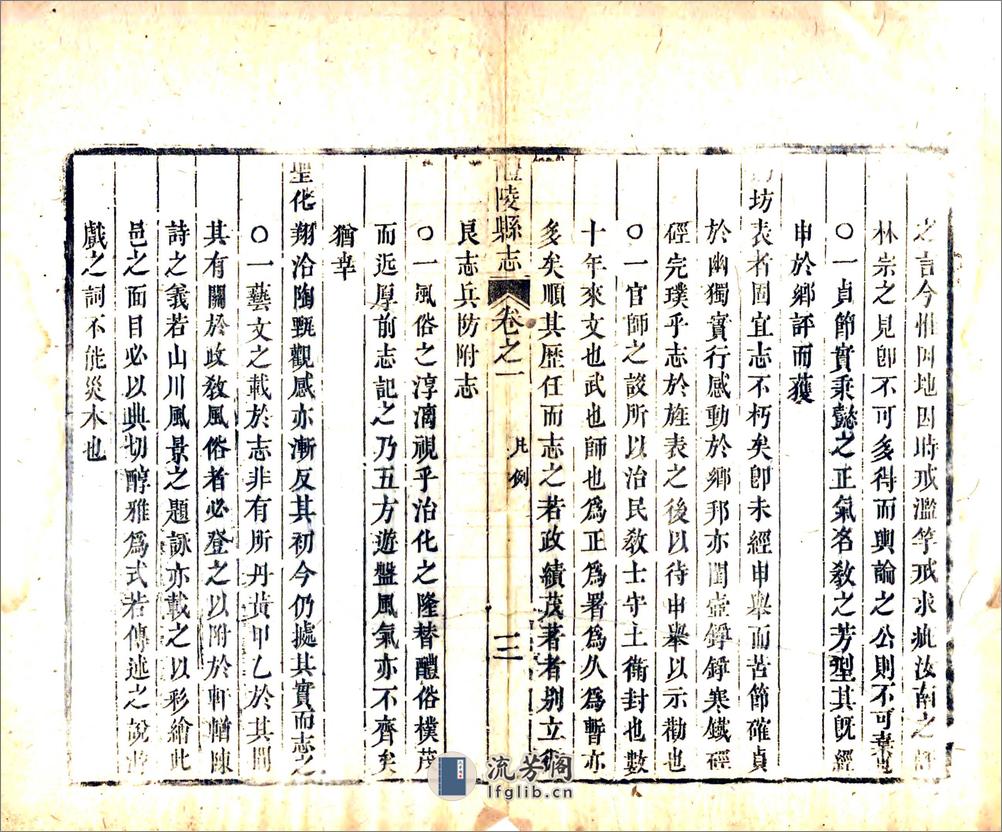 之言今惟因地因時戒濫竽戒求疵汝南之評
林宗之見卽不可多得而輿論之公則不可棄也
〇一貞節實秉懿之正氣名教之芳型其旣經
申於鄉評而獲
坊表者固宜志不朽矣卽未經申舉而苦節確貞
於幽獨實行感動於鄉邦亦閨壼錚錚寒鐵硜
硜完璞乎志於旌表之後以待申舉以示勸也
〇一官師之設所以治民敎士守土衛封也數
十年來文也武也師也爲正爲署爲久爲暫亦
多矣順其歷任而志之若政績茂著者別立
醴陵縣志
卷之一
凡例
三
艮志兵防附志
〇一風俗之淳漓視乎治化之隆替醴俗樸茂
而近厚前志記之乃五方遊盤風氣亦不齊矣
猶幸
聖化翔洽陶甄觀感亦漸反其初今仍據其實而志之
〇一藝文之載於志非有所丹黃甲乙於其間
其有關於政敎風俗者必登之以附於軒輶陳
詩之義若山川風景之題詠亦載之以彩繪此
邑之面目必以典切醇雅爲式若傳述之說
戲之詞不能災木也
流芳阁
lfglib.cn